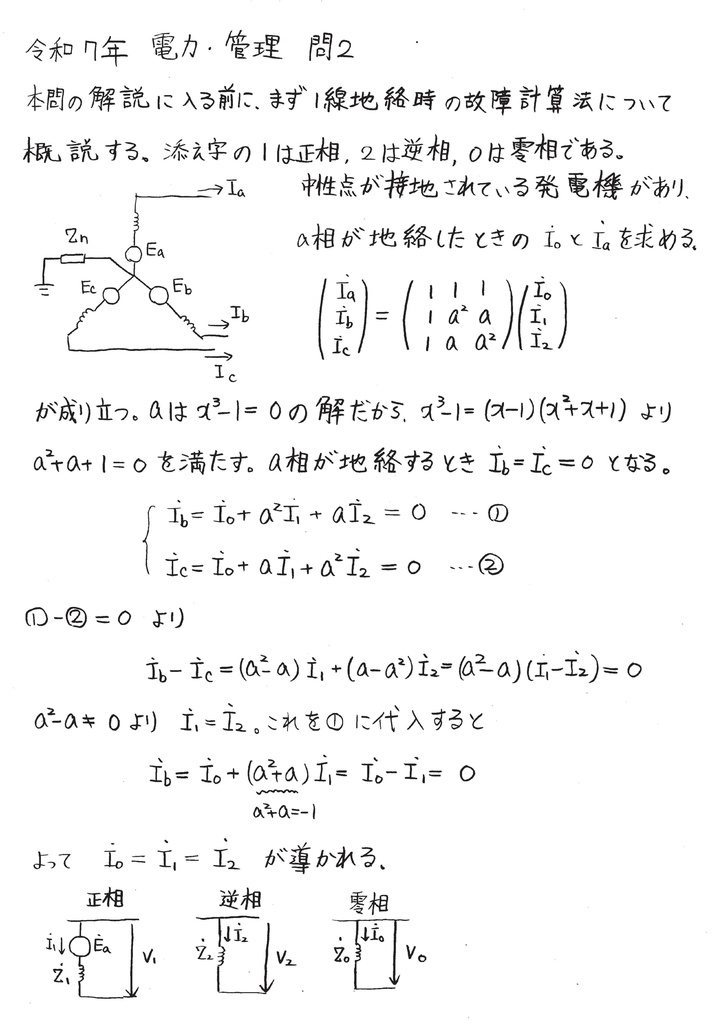 令和7年 電力・管理 問2
本問の解説に入る前に、まず1線地絡時の故障計算法について
概説する。添え字の1は正相, 2は逆相, 0は零相である。
中性点が接地されている発電機があり、
a相が地絡したときの İ₀ と İa を求める。
Ia
Zn
Ea
Ec
Eb
Ib
Ic
(İa İb İc) = (1 1 1 / 1 a² a / 1 a a²)(İ₀ İ₁ İ₂)
が成り立つ。aは x³-1=0 の解だから、x³-1=(x-1)(x²+x+1) より
a²+a+1=0 を満たす。a相が地絡するとき İb=İc=0 となる。
İb = İ₀ + a²İ₁ + aİ₂ = 0 … ①
İc = İ₀ + aİ₁ + a²İ₂ = 0 … ②
①-②=0 より
İb - İc = (a²-a)İ₁ + (a-a²)İ₂ = (a²-a)(İ₁-İ₂) = 0
a²-a≠0 より İ₁=İ₂。これを①に代入すると
İb = İ₀ + (a²+a)İ₁ = İ₀ - İ₁ = 0
a²+a=-1
よって İ₀ = İ₁ = İ₂ が導かれる。
正相 逆相 零相
İ₁↓ Ėa Ż₁ V₁
↓İ₂ Ż₂ V₂
↓İ₀ Ż₀ V₀